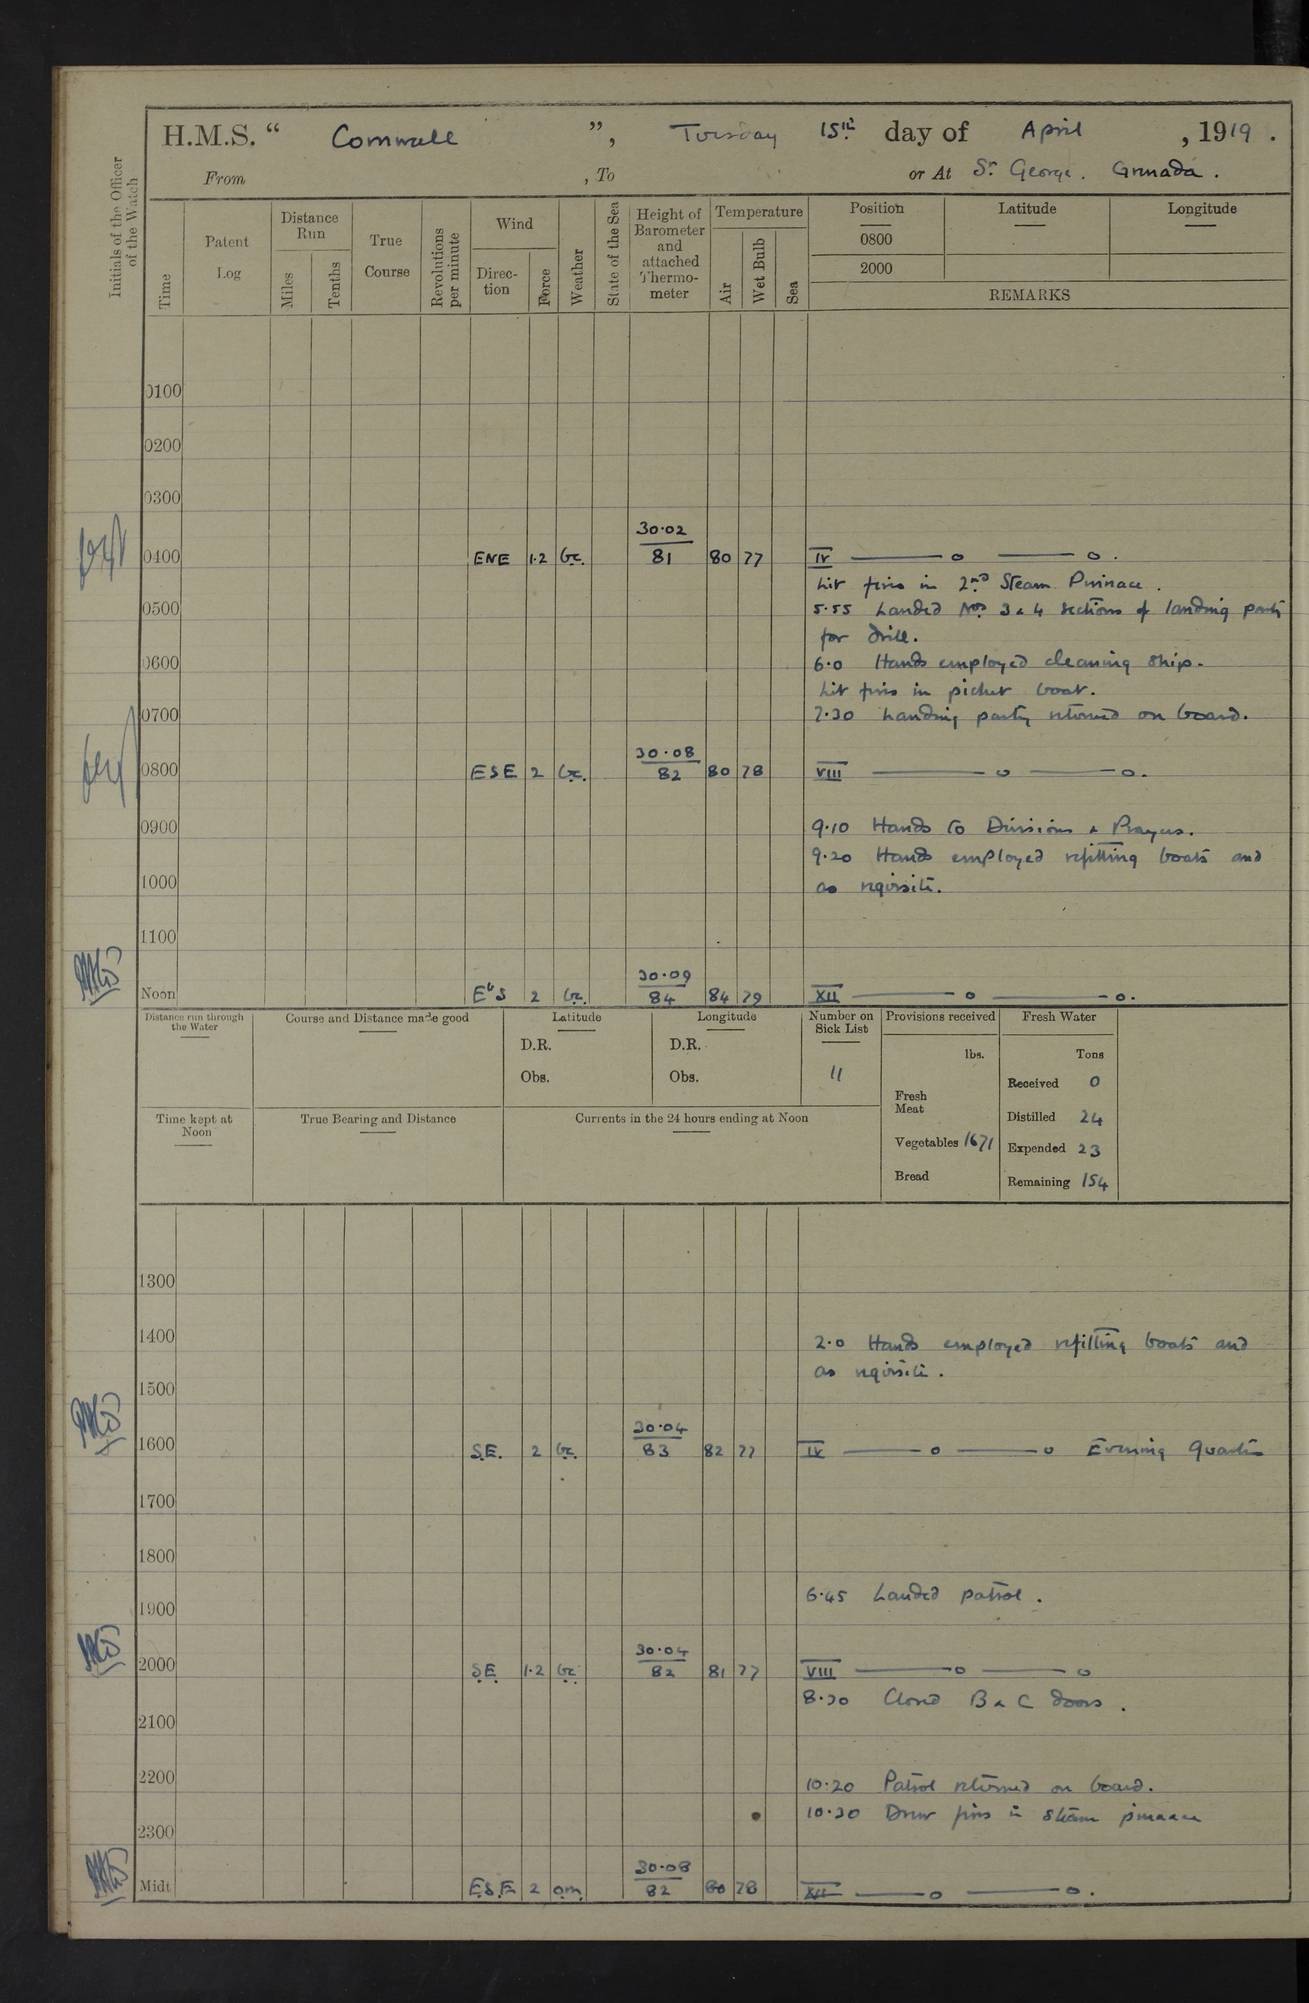 H.M.S. “ Cornwall ”, Tuesday 15th day of April , 1919 .
From , To or At St George. Grenada .
Initials of the Officer of the Watch
Time
Patent Log
Distance Run
Miles
Tenths
True Course
Revolutions per minute
Wind
Direc- tion
Force
Weather
State of the Sea
Height of Barometer and attached Thermo- meter
Temperature
Air
Wet Bulb
Sea
Position
0800
2000
Latitude
Longitude
REMARKS
0100
0200
0300
30.02
0400 ENE 1.2 bc. 81 80 77 IV ——— o ——— o .
Lit fires in 2nd Steam Pinnace .
0500 5.55 Landed Nos 3 & 4 sections of landing party
for drill.
0600 6.0 Hands employed cleaning ship.
Lit fires in picket boat.
0700 7.30 Landing party returned on board.
30.08
0800 ESE 2 bc. 82 80 78 VIII ——— o ——— o.
0900 9.10 Hands to Divisions & Prayers.
9.20 Hands employed refitting boats and
1000 as requisite.
1100
30.09
Noon EbS 2 bc. 84 84 79 XII ——— o ——— o.
Distance run through the Water
Course and Distance made good
Latitude
D.R.
Obs.
Longitude
D.R.
Obs.
Number on Sick List
11
Provisions received
lbs.
Fresh Meat
Vegetables 1671
Bread
Fresh Water
Tons
Received 0
Distilled 24
Expended 23
Remaining 154
Time kept at Noon
True Bearing and Distance
Currents in the 24 hours ending at Noon
1300
1400 2.0 Hands employed refitting boats and
as requisite .
1500
30.04
1600 S.E. 2 bc. 83 82 77 IV ——— o ——— o Evening Quarters
1700
1800
6.45 Landed patrol .
1900
30.04
2000 SE 1.2 bc 82 81 77 VIII ——— o ——— o
8.30 Closed B & C doors .
2100
2200 10.20 Patrol returned on board.
10.30 Drew fires in steam pinnace
2300
30.08
Midt E.S.E. 2 om 82 80 78 XII ——— o ——— o .